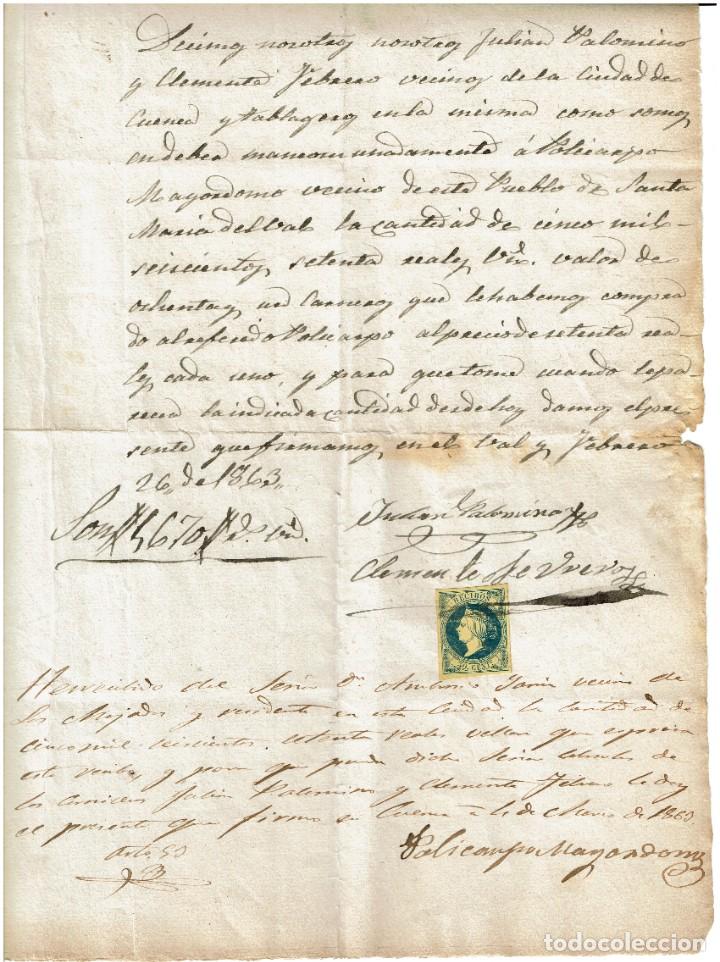 Decimos nosotros nosotros Julian Palomino
y Clemente Febrero vecinos de la Ciudad de
Cuenca y tablageros en la misma como somos
en deber mancomunadamente á Policarpo
Mayordomo vecino de este Pueblo de Santa
Maria del Val la cantidad de cinco mil
seiscientos, setenta reales Vn. valor de
ochenta y un Carneros que le habemos compra
do al referido Policarpo al precio de setenta rea-
les cada uno, y para que tome cuando le pa-
rezca la indicada cantidad desde hoy damos el pre-
sente que firmamos en el Val y Febrero
26,, de 1863,,
Son 5,670 rs. vn.
Julian Palomino
Clemente Febrero
RECIBOS
He recibido del Señor Dn. Ambrosio vecino de
Los y residente en esta Ciudad la cantidad de
cinco mil seiscientos reales vellon que espresa
este y para que pueda dicho Señor
los Julian Palomino y Clemente Febrero le doy
el presente que firmo en Cuenca á de de 1863.
Policarpo Mayordomo
todocoleccion
todocoleccion.net